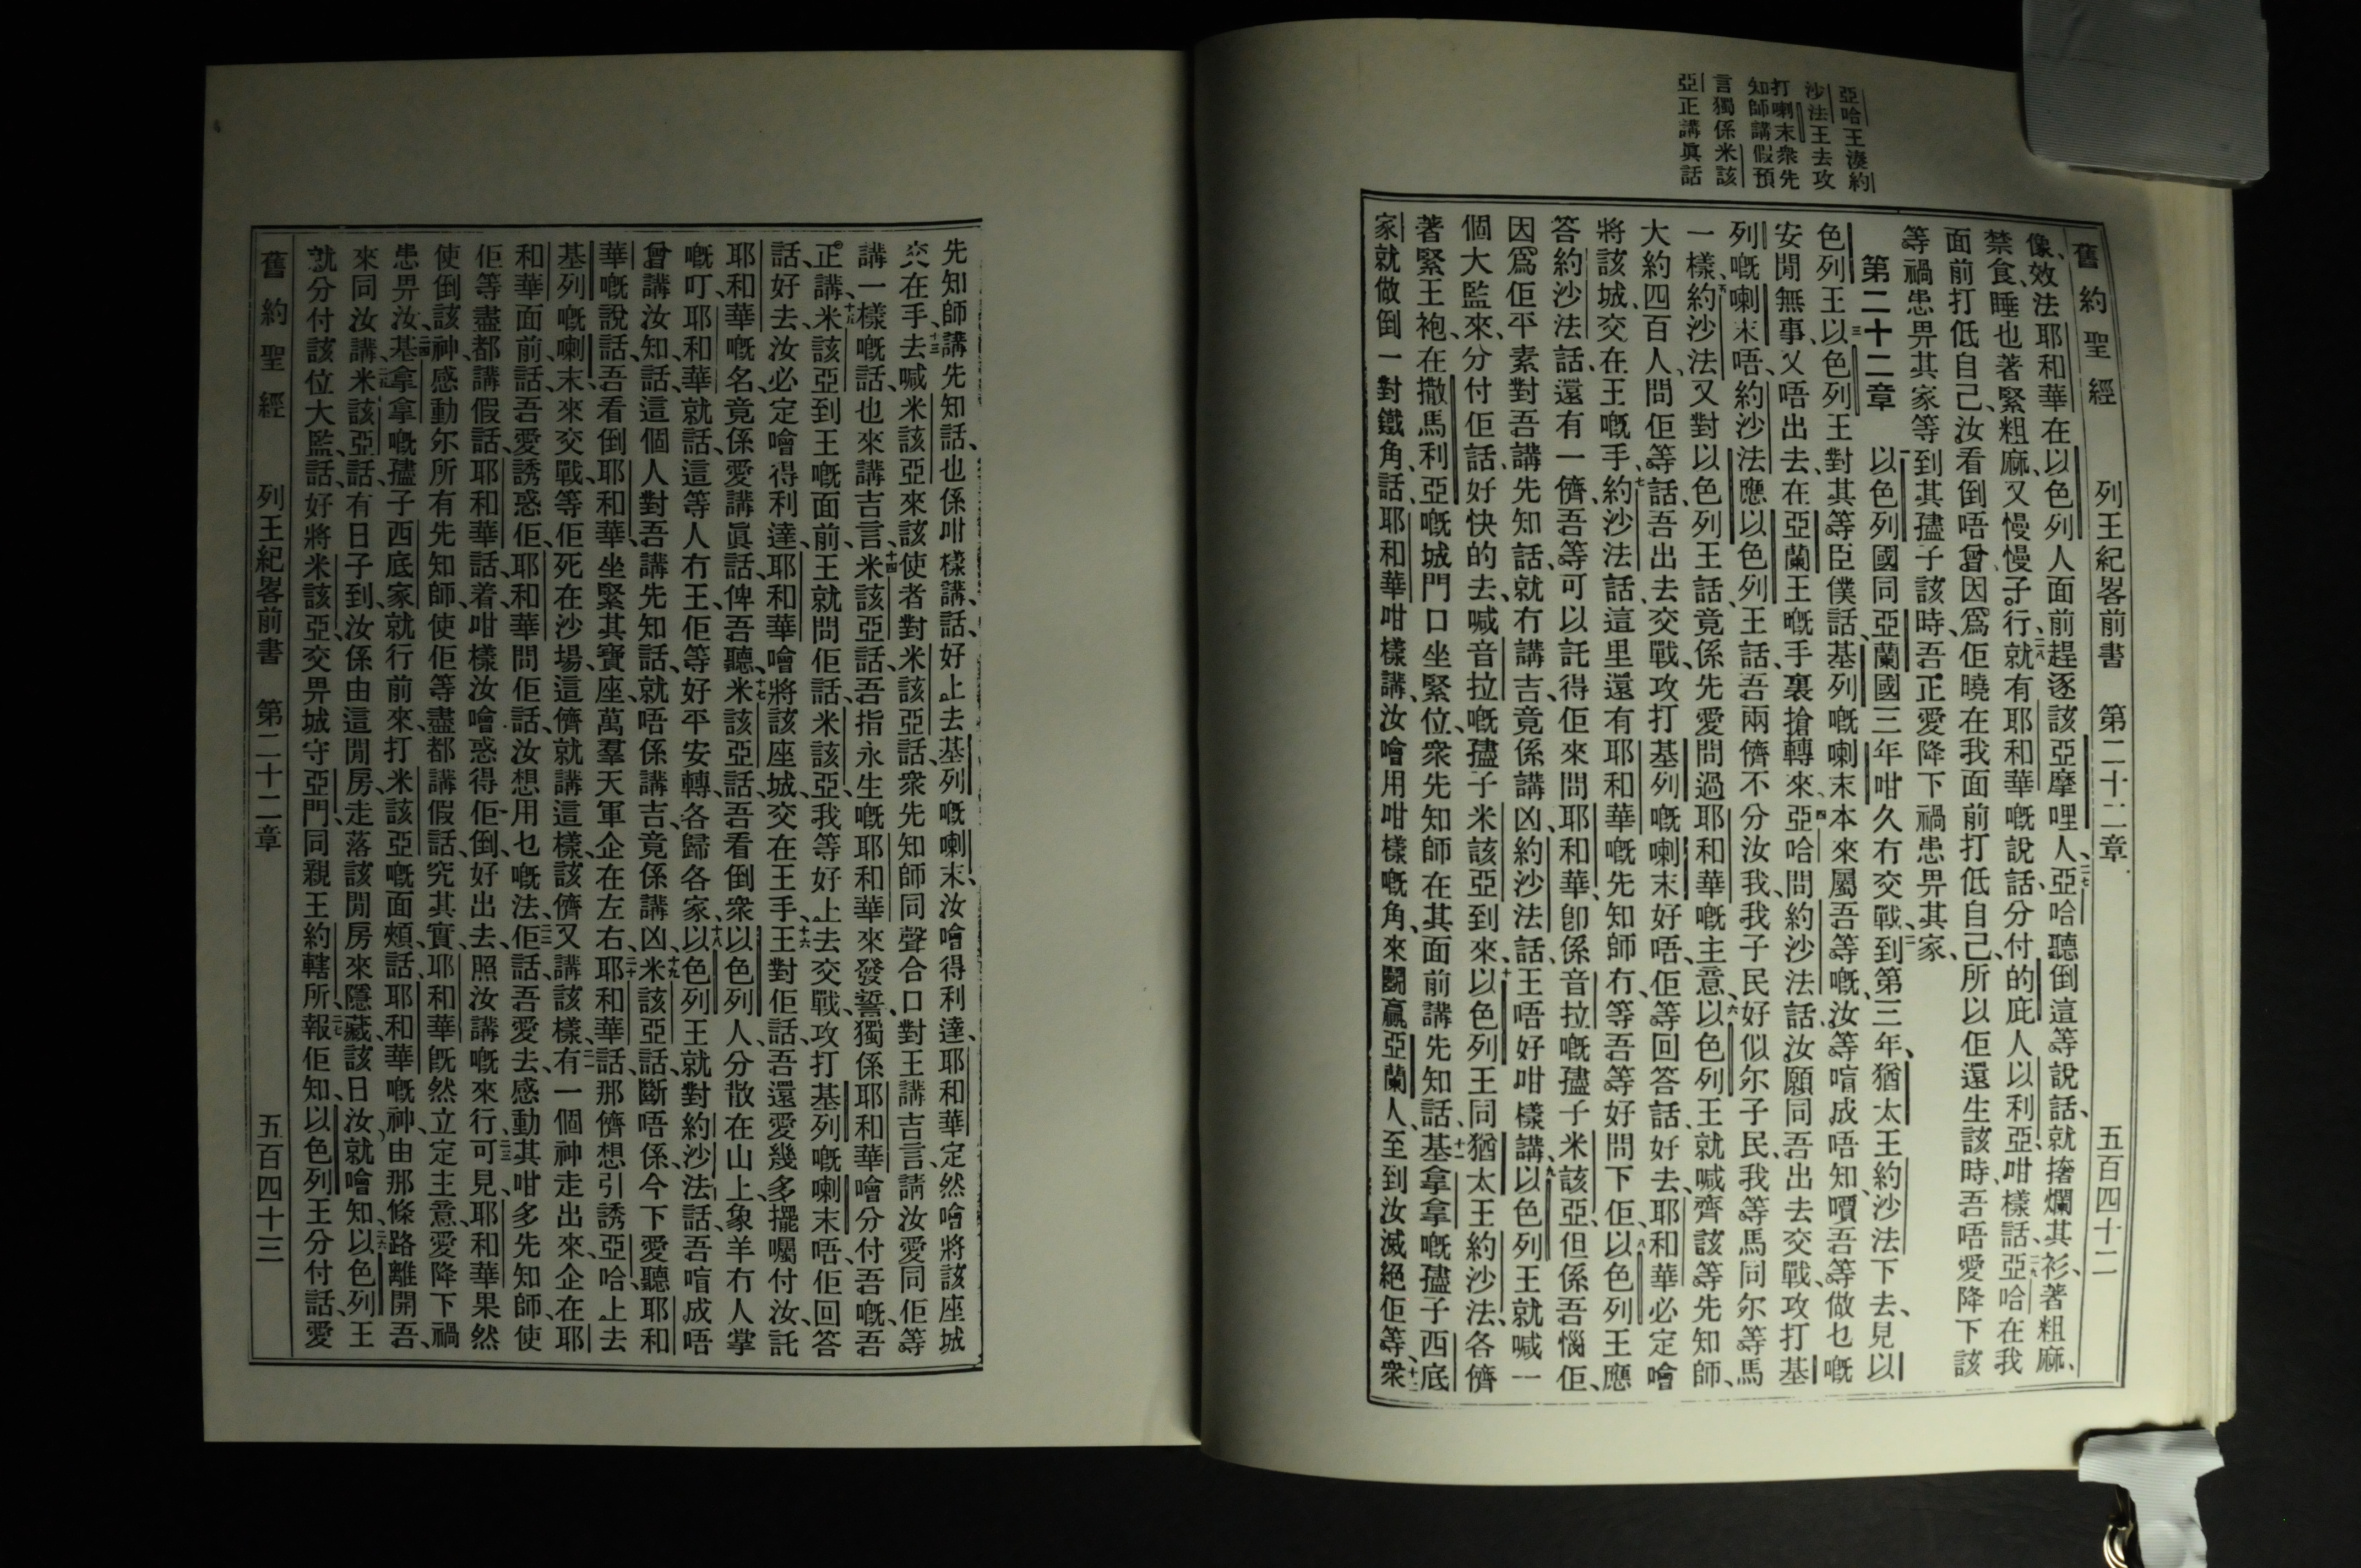 舊約聖經 列王紀畧前書 第二十二章 五百四十二
亞哈王湊約
沙法王去攻
打喇末衆先
知師講假預
言獨係米該
亞正講眞話
像、效法耶和華在以色列人面前趕逐該亞摩哩人、二七亞哈聽倒這等說話、就撦爛其衫、著粗麻、
禁食、睡也著緊粗麻、又慢慢子行、二八就有耶和華嘅說話、分付的庇人以利亞、咁樣話、二九亞哈在我
面前打低自己、汝看倒唔曾、因爲佢曉在我面前打低自己、所以佢還生該時、吾唔愛降下該
等禍患畀其家等到其孻子該時、吾正愛降下禍患畀其家、
第二十二章 一以色列國同亞蘭國三年咁久冇交戰、二到第三年、猶太王約沙法下去、見以
色列王、三以色列王對其等臣僕話、基列嘅喇末本來屬吾等嘅、汝等啃成唔知、嘪吾等做乜嘅
安閒無事、又唔出去、在亞蘭王嘅手裏搶轉來、四亞哈問約沙法話、汝願同吾出去交戰、攻打基
列嘅喇末唔、約沙法應以色列王話、吾兩儕不分汝我、我子民好似尔子民、我等馬同尔等馬
一樣、五約沙法又對以色列王話、竟係先愛問過耶和華嘅主意、六以色列王就喊齊該等先知師、
大約四百人、問佢等話、吾出去交戰、攻打基列嘅喇末好唔、佢等回答話、好去、耶和華必定噲
將該城、交在王嘅手、七約沙法話、這里還有耶和華嘅先知師冇、等吾等好問下佢、八以色列王應
答約沙法話、還有一儕、吾等可以託得佢來問耶和華、卽係音拉嘅孻子米該亞、但係吾惱佢、
因爲佢平素對吾講先知話、就冇講吉、竟係講凶、約沙法話、王唔好咁樣講、九以色列王就喊一
個大監來、分付佢話、好快的去喊音拉嘅孻子米該亞到來、十以色列王同猶太王約沙法、各儕
著緊王袍、在撒馬利亞嘅城門口坐緊位、衆先知師在其面前講先知話、十一基拿拿嘅孻子西底
家就做倒一對鐵角、話、耶和華咁樣講、汝噲用咁樣嘅角、來鬬贏亞蘭人、至到汝滅絕佢等、十二衆
先知師講先知話、也係咁樣講、話、好上去基列嘅喇末、汝噲得利達、耶和華定然噲將該座城
交在手、十三去喊米該亞來該使者對米該亞話、衆先知師同聲合口對王講吉言、請汝愛同佢等
講一樣嘅話、也來講吉言、十四米該亞話、吾指永生嘅耶和華來發誓、獨係耶和華噲分付吾嘅、吾
正講、十五米該亞到王嘅面前、王就問佢話、米該亞、我等好上去交戰、攻打基列嘅喇末唔、佢回答
話、好去、汝必定噲得利達、耶和華噲將該座城、交在王手、十六王對佢話、吾還愛幾多擺囑付汝、託
耶和華嘅名、竟係愛講眞話、俾吾聽、十七米該亞話、吾看倒衆以色列人分散在山上、象羊冇人掌
嘅叮、耶和華就話、這等人冇王、佢等好平安轉、各歸各家、十八以色列王就對約沙法話、吾啃成唔
曾講汝知、話、這個人對吾講先知話、就唔係講吉、竟係講凶、十九米該亞話、斷唔係、今下愛聽耶和
華嘅說話、吾看倒耶和華坐緊其寶座、萬羣天軍企在左右、二十耶和華話、那儕想引誘亞哈、上去
基列嘅喇末、來交戰、等佢死在沙場、這儕就講這樣、該儕又講該樣、二一有一個神走出來、企在耶
和華面前、話、吾愛誘惑佢、耶和華問佢話、汝想用乜嘅法、二二佢話、吾愛去感動其咁多先知師、使
佢等盡都講假話、耶和華話、着、咁樣汝噲惑得佢倒、好出去、照汝講嘅來行、二三可見、耶和華果然
使倒該神、感動尔所有先知師、使佢等盡都講假話、究其實、耶和華旣然立定主意、愛降下禍
患畀汝、二四基拿拿嘅孻子西底家就行前來、打米該亞嘅面頰、話、耶和華嘅神、由那條路離開吾、
來同汝講、二五米該亞話、有日子到、汝係由這間房走落該間房來隱藏、該日汝就噲知、二六以色列王
就分付該位大監、話、好將米該亞、交畀城守亞門、同親王約轄所、二七報佢知、以色列王分付話、愛
舊約聖經 列王紀畧前書 第二十二章 五百四十三